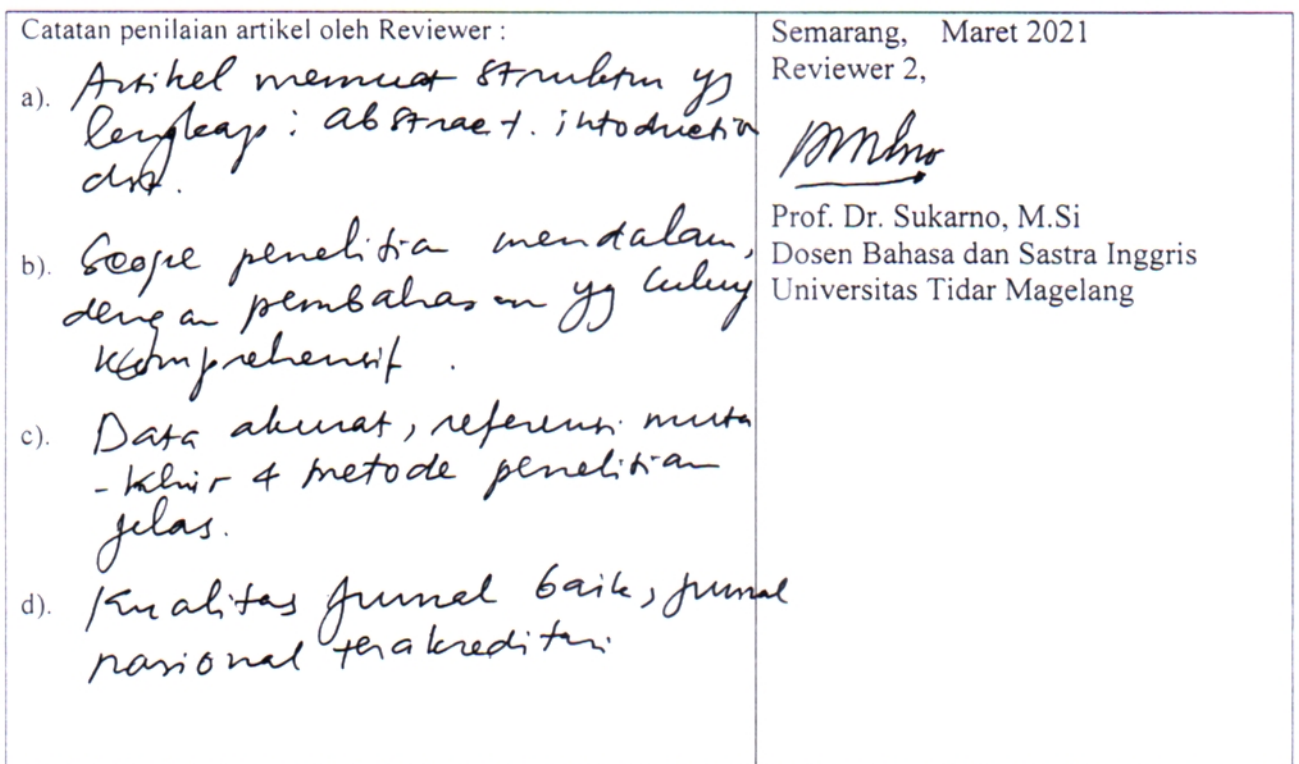 Catatan penilaian artikel oleh Reviewer :
a). Artikel memuat struktur yg
lengkap : abstract. intoduction
dst.
b). Scope penelitian mendalam,
dengan pembahasan yg cukup
komprehensif .
c). Data akurat, referensi muta
- khir & metode penelitian
jelas.
d). Kualitas jurnal baik, jurnal
nasional terakreditasi
Semarang, Maret 2021
Reviewer 2,
Prof. Dr. Sukarno, M.Si
Dosen Bahasa dan Sastra Inggris
Universitas Tidar Magelang